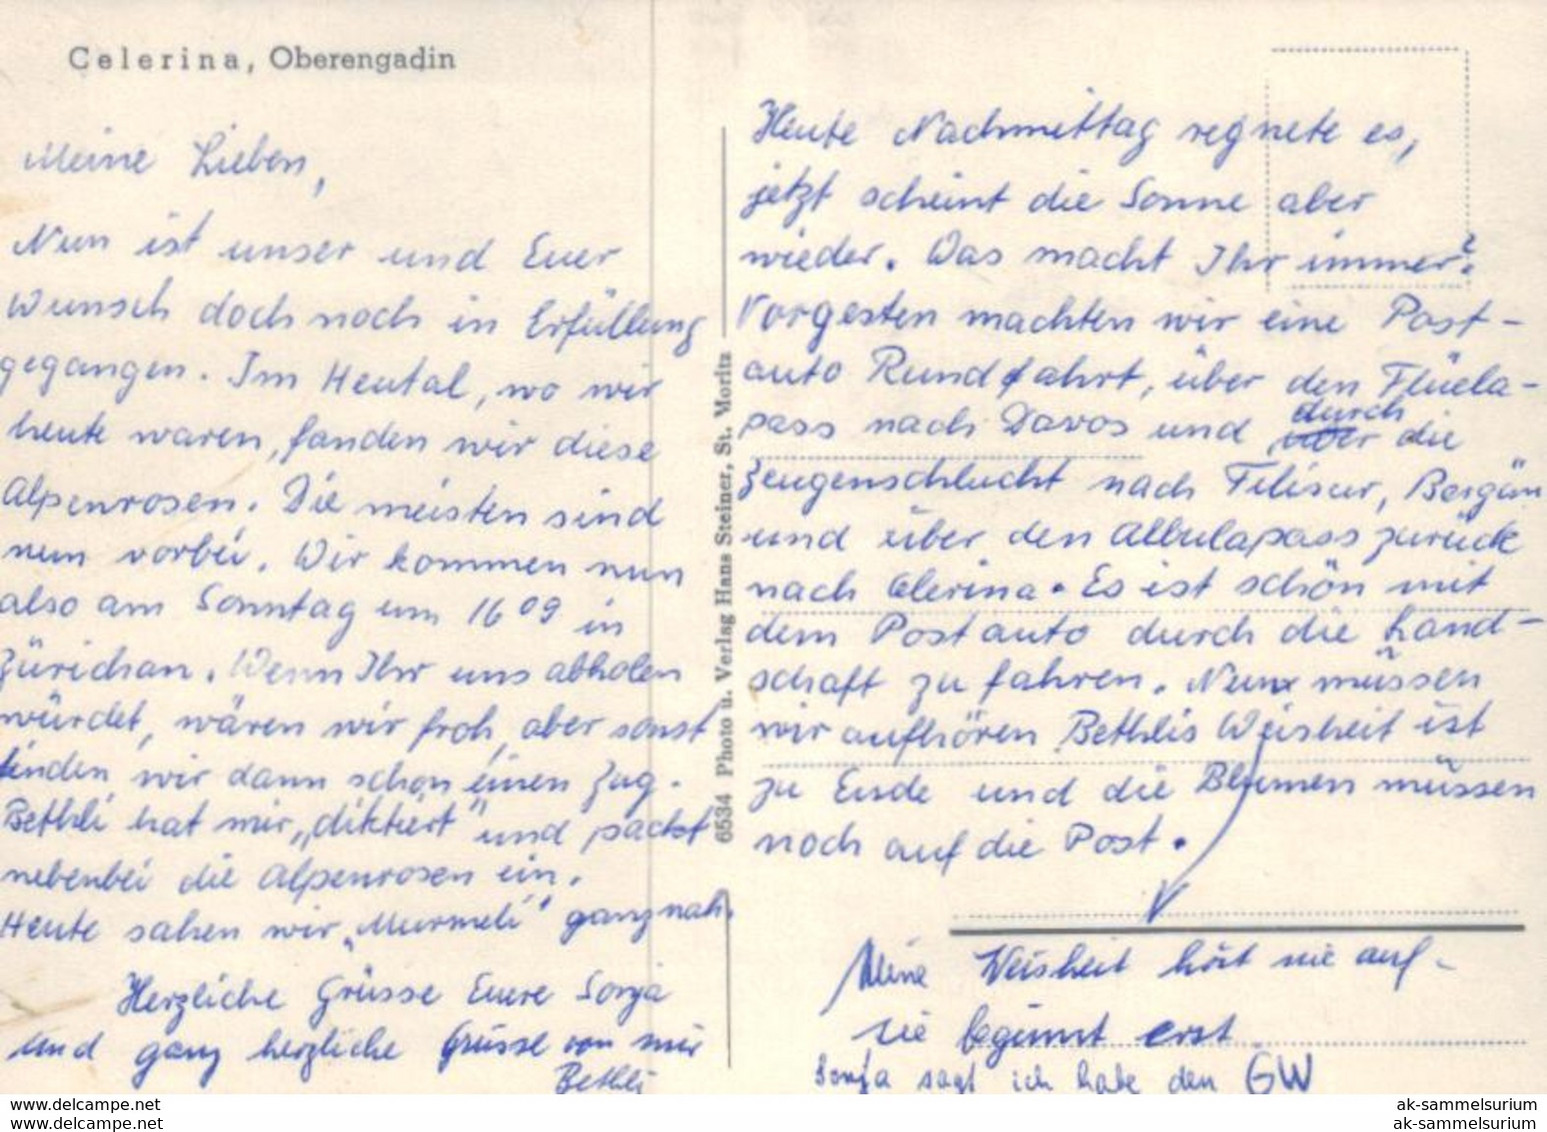 Celerina, Oberengadin
Meine Lieben,
Nun ist unser und Euer
Wunsch doch noch in Erfüllung
gegangen. Im Heutal, wo wir
heute waren, fanden wir diese
Alpenrosen. Die meisten sind
nun vorbei. Wir kommen nun
also am Sonntag um 16 09 in
Zürich an. Wenn Ihr uns abholen
würdet, wären wir froh, aber sonst
finden wir dann schon einen Zug.
Bethli hat mir „diktiert" und packt
nebenbei die Alpenrosen ein.
Heute sahen wir „Murmeli" ganz nah.
Herzliche Grüsse Eure Sonja
und ganz herzliche Grüsse von mir
Bethli
6534 Photo u. Verlag Hans Steiner, St. Moritz
Heute Nachmittag regnete es,
jetzt scheint die Sonne aber
wieder. Was macht Ihr immer?
Vorgestern machten wir eine Post-
auto Rundfahrt, über den Flüela-
pass nach Davos und durch die
Zeugenschlucht nach Filisur, Bergün
und über den Albulapass zurück
nach Celerina. Es ist schön mit
dem Postauto durch die Land-
schaft zu fahren. Nun müssen
wir aufhören Bethlis Weisheit ist
zu Ende und die Blumen müssen
noch auf die Post.
Meine Weisheit hört nie auf -
sie beginnt erst
Sonja sagt ich habe den GW
ak-sammelsurium
delcampe.net
ak-sammelsurium
delcampe.net